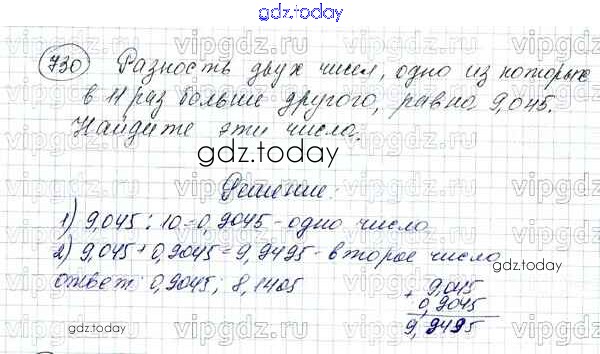 gdz.today
730 Разность двух чисел, одно из которых
в 11 раз больше другого, равна 9,045.
Найдите эти числа.
gdz.today
Решение:
1) 9,045 : 10 = 0,9045 - одно число
2) 9,045 + 0,9045 = 9,9495 - второе число
ответ: 0,9045; 8,1405
9,045
+ 0,9045
9,9495
gdz.today
gdz.today